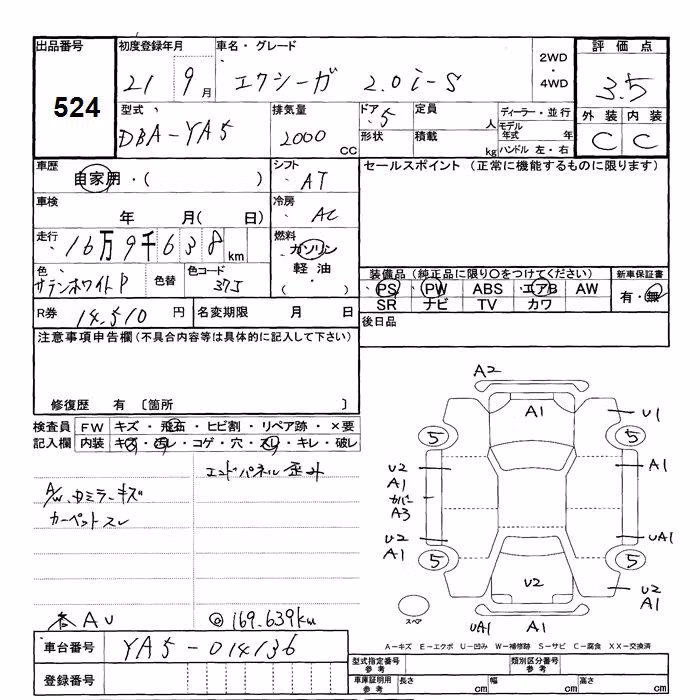 出品番号 初度登録年月 車名・グレード 2WD・4WD 評価点
524 21 9月 エクシーガ 2.0i-S 3.5
型式 排気量 ドア 定員 ディーラー・並行 外装 内装
DBA-YA5 2000 CC 5 人 モデル年式 年 C C
形状 積載 kg ハンドル 左・右
車歴 シフト セールスポイント (正常に機能するものに限ります)
自家用・( ) AT
車検 冷房
年 月( 日) AC
走行 16万9千638km 燃料
ガソリン
軽油
・( )
色 色替 色コード
サテンホワイトP 37J
装備品(純正品に限り○をつけてください) 新車保証書
PS PW ABS エアB AW 有・無
SR ナビ TV カワ
R券 14,510 円 名変期限 月 日 後日品
注意事項申告欄(不具合内容等は具体的に記入して下さい)
修復歴 有 〔箇所 〕
検査員 FW キズ・飛石・ヒビ割・リペア跡・×要
記入欄 内装 キズ・汚レ・コゲ・穴・スレ・キレ・破レ
エンドパネル歪み
A/W、カミラーキズ
カーペットスレ
各AU @169.639km
A2
A1
U1
5 5
U2
A1
A1
カバー
A3
U2
A1
UA1
5 5
U2
U2
A1
スペア
UA1 A1
A-キズ E-エクボ U-凹み W-補修跡 S-サビ C-腐食 XX-交換済
車台番号 YA5-014136
登録番号
型式指定番号 参考 類別区分番号 参考
車庫証明用 参考 長さ cm 幅 cm 高さ cm